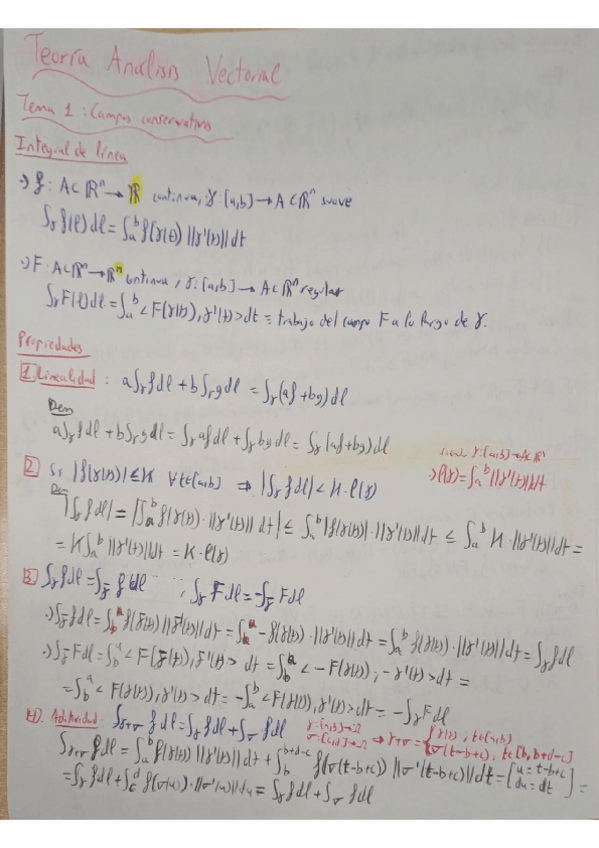 Teoría Análisis Vectorial
Tema 1 : Campos conservativos
Integral de línea
·) f : A⊂ℝⁿ → ℝ continua, γ : [a,b] → A⊂ℝⁿ suave
∫γ f(l) dl = ∫ₐᵇ f(γ(t)) ||γ'(t)|| dt
·) F : A⊂ℝⁿ → ℝⁿ continua, γ : [a,b] → A⊂ℝⁿ regular
∫γ F(l) dl = ∫ₐᵇ < F(γ(t)), γ'(t) > dt = trabajo del campo F a lo largo de γ.
Propiedades
1 Linealidad : a∫γ f dl + b∫γ g dl = ∫γ (af + bg) dl
Dem
a∫γ f dl + b∫γ g dl = ∫γ af dl + ∫γ bg dl = ∫γ (af + bg) dl
siendo γ : [a,b] → A⊂ℝⁿ
2 Si |f(γ(t))| ≤ K ∀t∈[a,b] ⇒ |∫γ f dl| < K · l(γ)
l(γ) = ∫ₐᵇ ||γ'(t)|| dt
Dem
|∫γ f dl| = |∫ₐᵇ f(γ(t)) · ||γ'(t)|| dt| ≤ ∫ₐᵇ |f(γ(t))| · ||γ'(t)|| dt ≤ ∫ₐᵇ K · ||γ'(t)|| dt =
= K∫ₐᵇ ||γ'(t)|| dt = K · l(γ)
3 ∫γ f dl = ∫γ̄ f dl , ∫γ F dl = -∫γ̄ F dl
·) ∫γ̄ f dl = ∫ᵇₐ f(γ̄(t)) ||γ̄'(t)|| dt = ∫ᵇₐ - f(γ(t)) · ||γ'(t)|| dt = ∫ₐᵇ f(γ(t)) · ||γ'(t)|| dt = ∫γ f dl
·) ∫γ̄ F dl = ∫ᵇₐ < F(γ̄(t)), γ̄'(t) > dt = ∫ᵇₐ < - F(γ(t)), - γ'(t) > dt =
= ∫ᵇₐ < F(γ(t)), γ'(t) > dt = -∫ₐᵇ < F(γ(t)), γ'(t) > dt = -∫γ F dl
4. Aditividad : ∫γ+σ f dl = ∫γ f dl + ∫σ f dl
γ : [a,b] → Ω
σ : [c,d] → Ω
→ γ+σ = { γ(t), t∈[a,b]
σ(t-b+c), t∈[b, b+d-c]
∫γ+σ f dl = ∫ₐᵇ f(γ(t)) ||γ'(t)|| dt + ∫_b^{b+d-c} f(σ(t-b+c)) ||σ'(t-b+c)|| dt = [u = t-b+c
du = dt] =
= ∫γ f dl + ∫_c^d f(σ(u)) · ||σ'(u)|| du = ∫γ f dl + ∫σ f dl